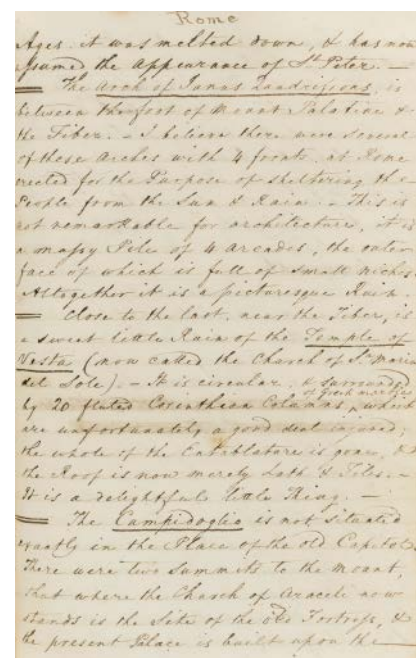 Rome
Ages it was melted down, & has now
assumed the appearance of St Peter. —
The Arch of Janus Quadrifrons, is
between the foot of Mount Palatine &
the Tiber. – I believe there were several
of these Arches with 4 fronts, at Rome
erected for the Purpose of sheltering the
People from the Sun & Rain. – This is
not remarkable for architecture, it is
a massy Pile of 4 arcades, the outer
face of which is full of small niches.
Altogether it is a picturesque Ruin.
Close to the last, near the Tiber, is
a sweet little Ruin of the Temple of
Vesta (now called the Church of Sta Maria
del Sole). – It is circular, & surrounded
of Greek marble
by 20 fluted Corinthian Columns, which
are unfortunately a good deal injured;
the whole of the Entablature is gone, &
the Roof is now merely Lath & Tiles. –
It is a delightful little Thing. —
The Campidoglio is not situated
exactly in the Place of the old Capitol.
There were two summits to the Mount,
that where the Church of Araceli now
stands is the Site of the old Fortress, &
the present Palace is built upon the